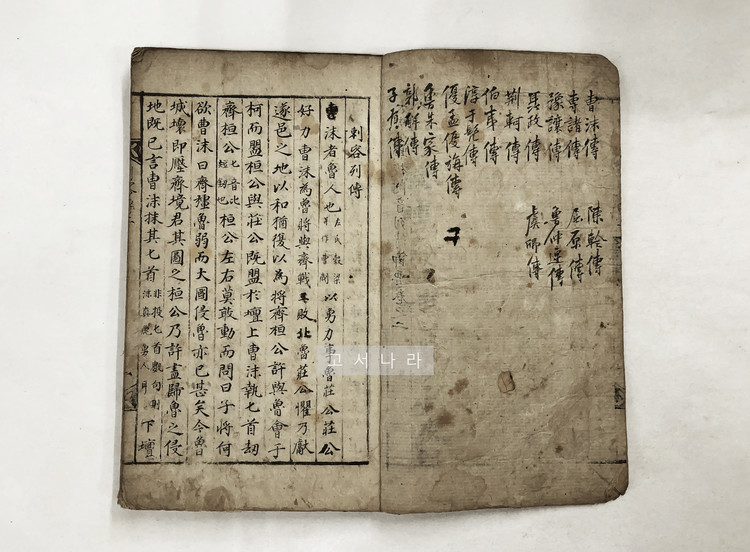 曹沫傳
專諸傳
豫讓傳
聶政傳
荆軻傳
伯夷傳
淳于髡傳
優孟優旃傳
魯朱家傳
郭解傳
子貢傳
陳軫傳
屈原傳
魯仲連傳
虞卿傳
刺客列傳
曹沫者魯人也左氏穀梁並作曹劌以勇力事魯莊公莊公
好力曹沫為魯將與齊戰三敗北魯莊公懼乃獻
遂邑之地以和猶復以為將齊桓公許與魯會于
柯而盟桓公與莊公既盟於壇上曹沫執匕首劫
齊桓公匕音比短劒也桓公左右莫敢動而問曰子將何
欲曹沫曰齊强魯弱而大國侵魯亦已甚矣今魯
城壞即壓齊境君其圖之桓公乃許盡歸魯之侵
地既已言曹沫抹其匕首非投匕首觀勇人耶下壇
고서나라